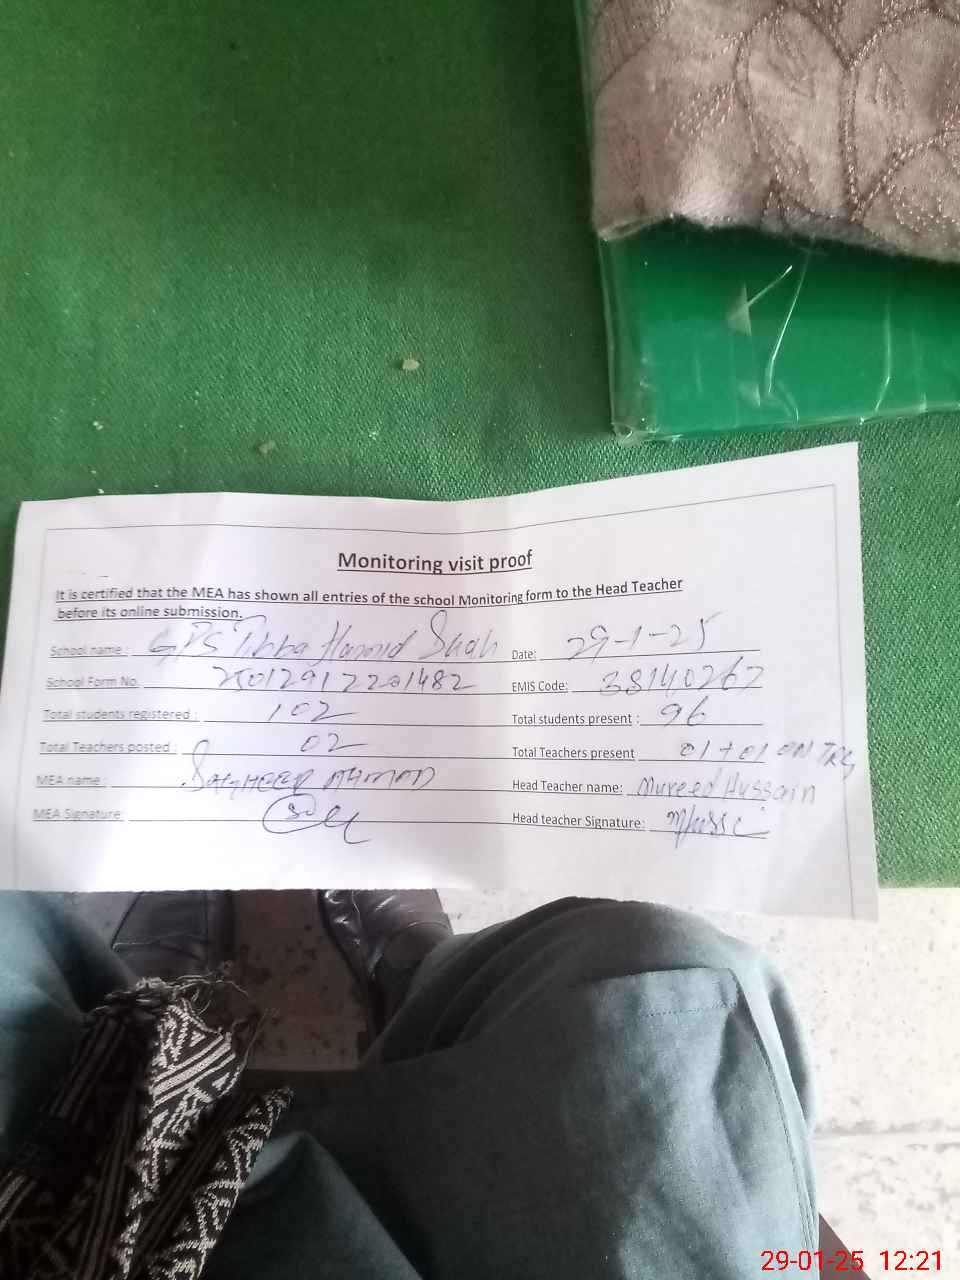 Monitoring visit proof
It is certified that the MEA has shown all entries of the school Monitoring form to the Head Teacher
before its online submission.
School name : GPS Tibba Hamid Shah Date: 29-1-25
School Form No. 25012912201482 EMIS Code: 38140267
Total students registered : 102 Total students present : 96
Total Teachers posted : 02 Total Teachers present 01+01 ON TRG
MEA name : AHMAD Head Teacher name: Mureed Hussain
MEA Signature: Head teacher Signature:
29-01-25 12:21